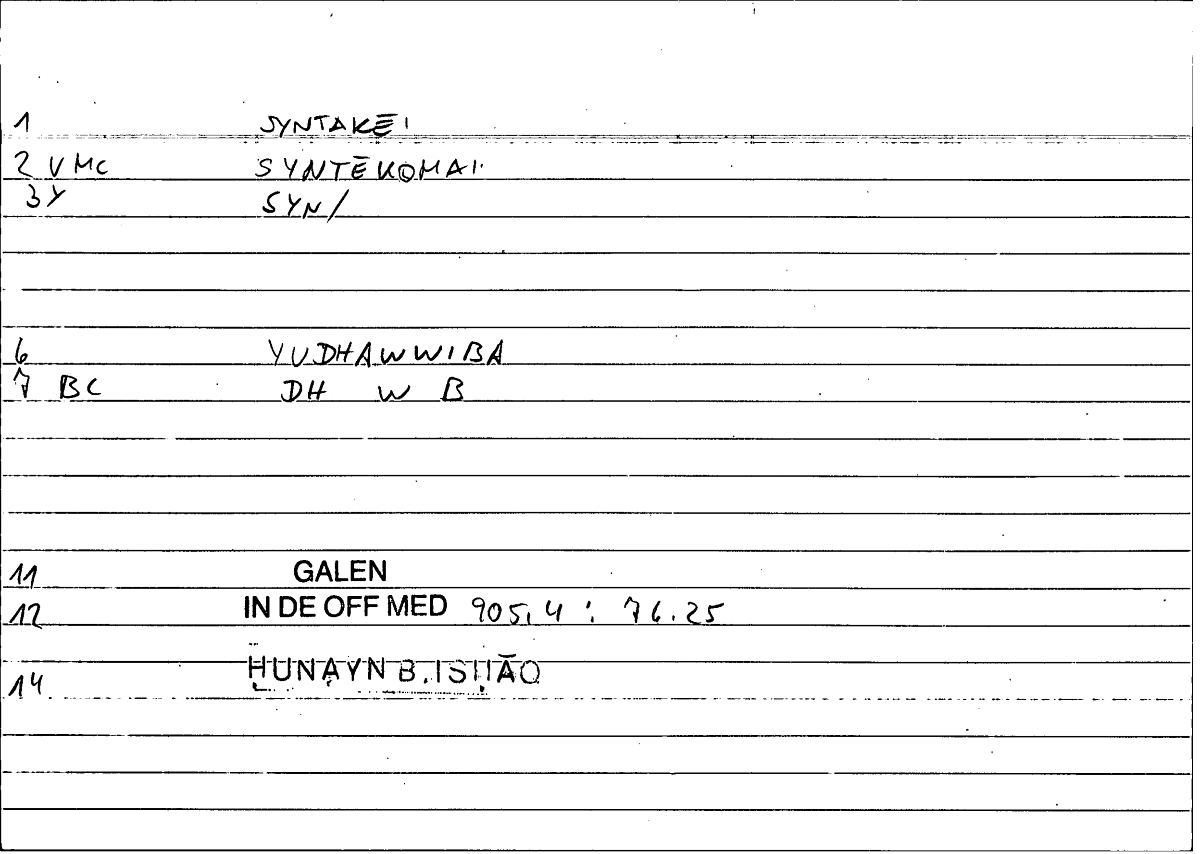 1 SYNTAKĒI
2 VMC SYNTĒKOMAI
3Y SYN/
6 YUDHAWWIBA
7 BC DH W B
11 GALEN
12 IN DE OFF MED 905,4 : 76.25
14 ḤUNAYN B. ISḤĀQ